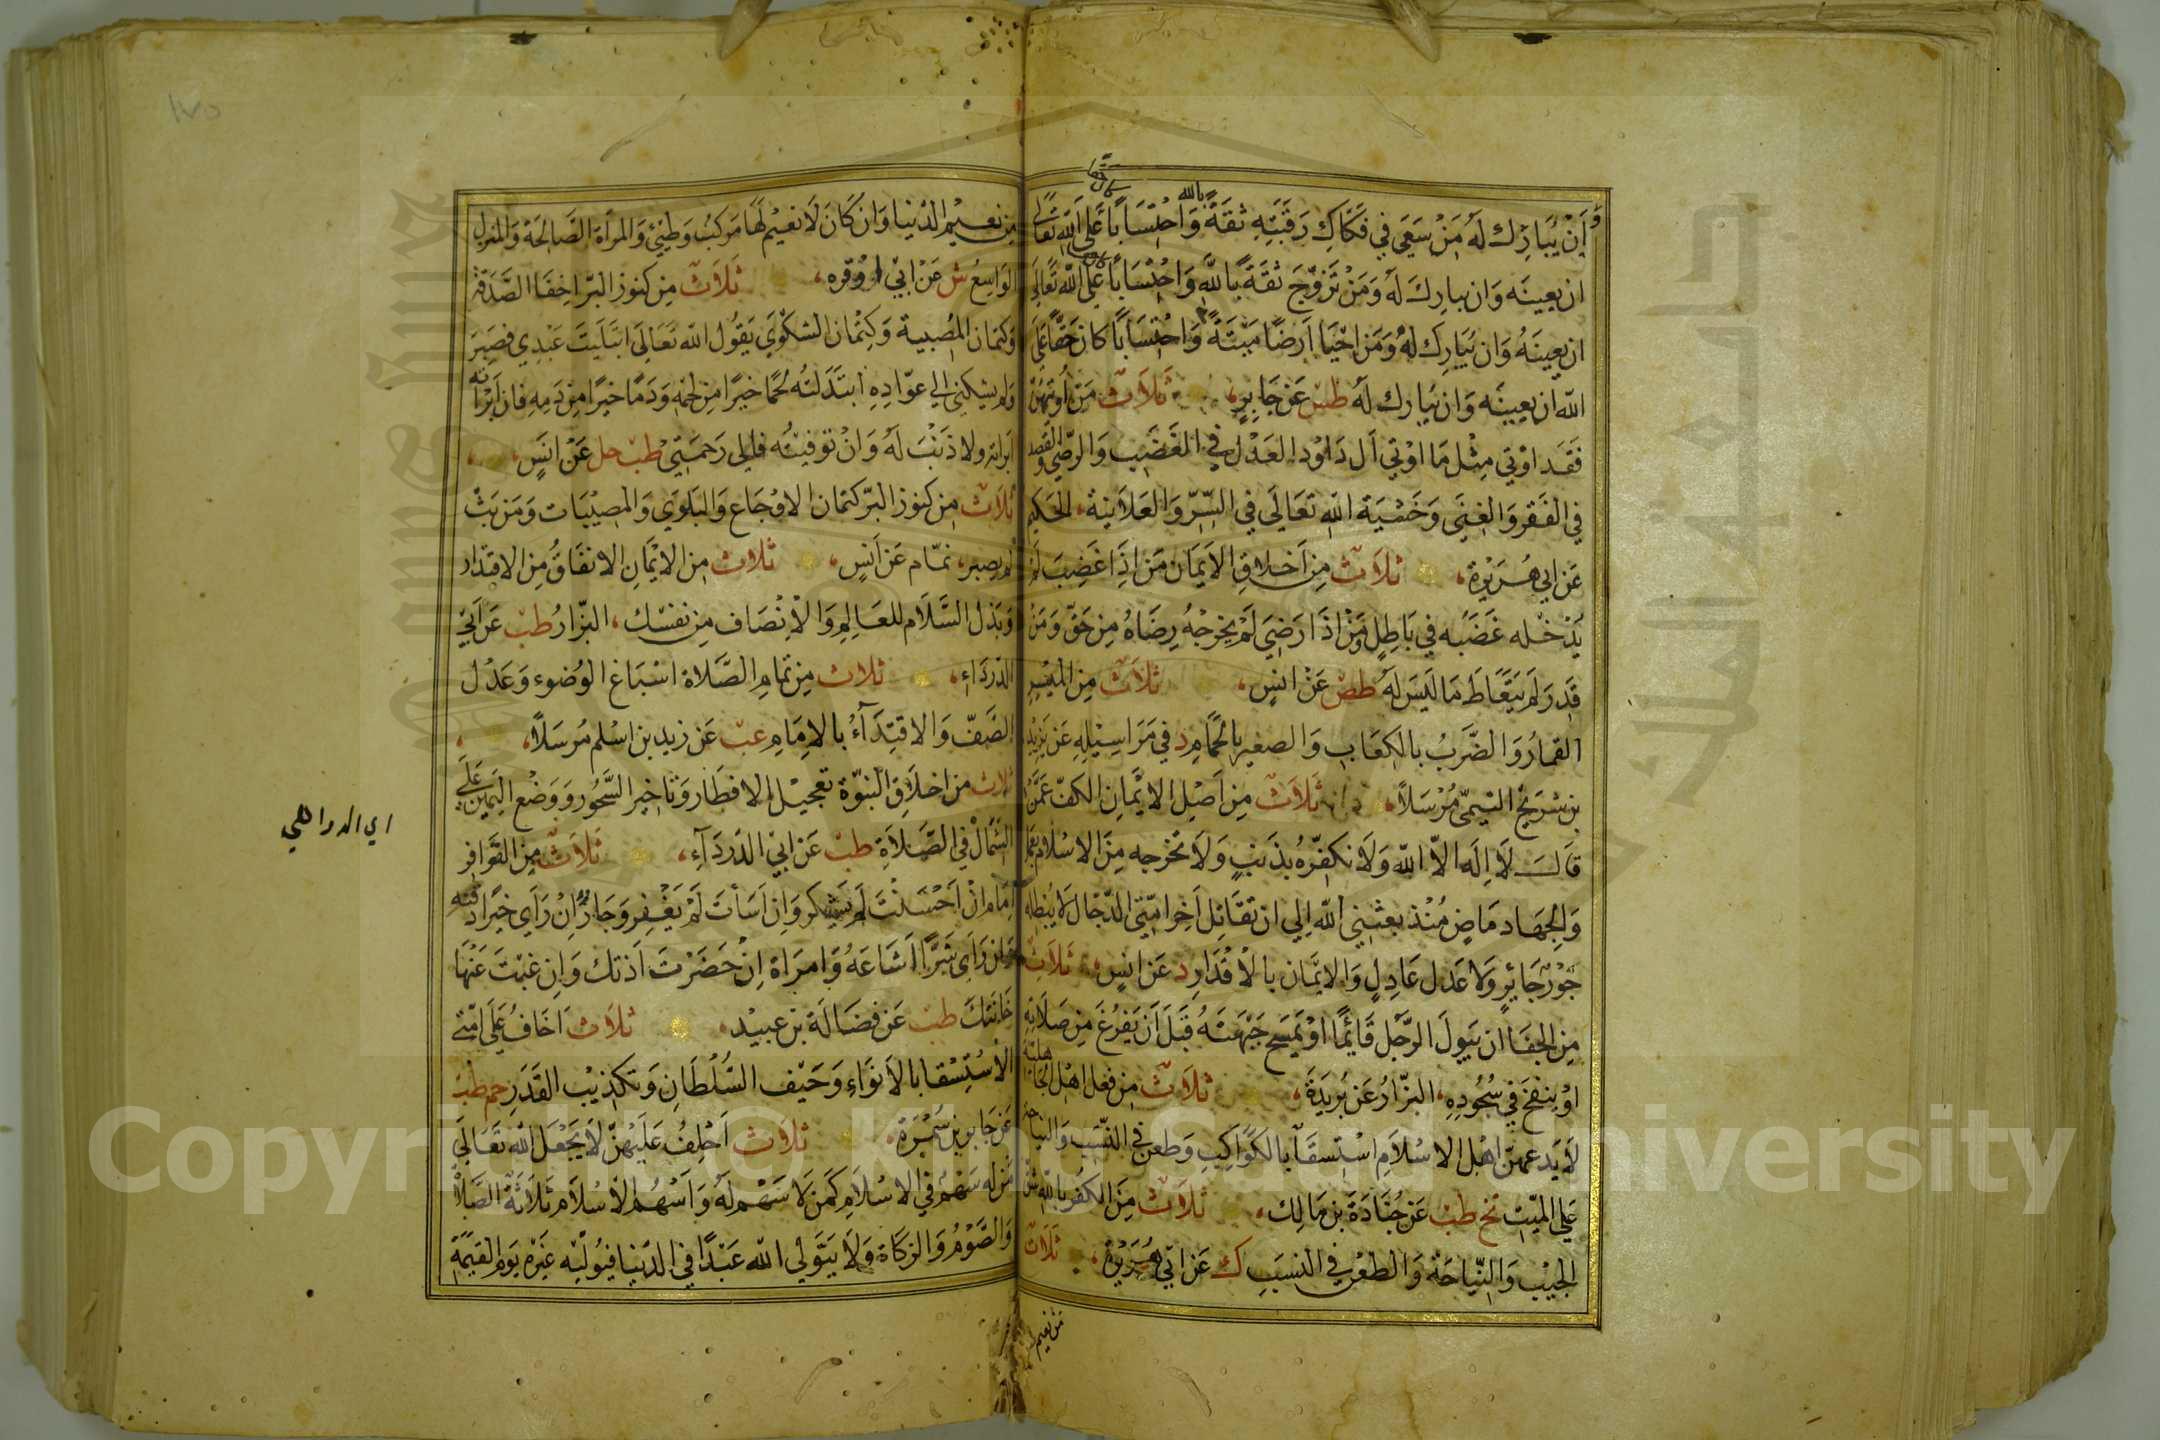 وَاَنْ يُبَارِكَ لَهُ مَنْ سَعَي فِي فَكَاكِ رَقَبَتِهِ ثِقَةً بالله وَاحْتِسَابًا كان حقا عَلَي اللّهِ تَعَالَي
ان يعينَه وَان يبارِكَ لَهُ وَمَنْ تَزَوَّجَ ثِقَةً بِاللّهِ وَاحْتِسَابًا كان حقا عَلَي اللّه تَعَالَي
ان يعِينَهُ وَان يُبَارِكَ لَهُ وَمَنْ احْيَا اَرضًا مَيْتَةً وَاحْتِسَابًا كَانَ حَقًّا عَلَي
اللّه ان يعِينَه وَان يُبَارك لَهُ طس عَن جَابِرٍ ثَلاَثٌ مَنْ اُوتِيَهُنَّ
فَقَد اوْتي مِثْل مَا اوْتي اَل دَاوُد العَدْل فِي الغَضَبِ وَالرِّضَي وَالقصد
فِي الفَقر وَالغِنَي وَخَشيَة اللّهِ تعَالَي في السِّرّ وَالعَلاَنِيَة الحَكيم
عَن ابي هُرَيْرَة ثَلاَثٌ مِن اَخلاَقِ الاِيمَان مَن اذَا غَضِبَ لَم
يُدْخله غَضَبُه في بَاطِلٍ وَمَنْ اذَا رَضِيَ لَمْ يخرِجهُ رِضَاهُ مِن حَقّ وَمَن
قَدَرَ لَم يتَعَاطَ مَا لَيسَ لَهُ طص عَنْ انسٍ ثَلاَثٌ مِن المَيْسِر
القمارُ وَالضَّرْبُ بالكعَابِ وَالصفير بِالحَمَامِ د في مَرَاسِيْلِهِ عَن يَزِيْد
بن شُرَيْحِ التيميّ مُرْسَلاً ثَلاَثٌ مِن اَصِل الاِيمَانِ الكَفّ عَمَّن
قَالَ لاَ اِلَه الاّ اللّه وَلاَ نكفّرُهُ بذَنبٍ وَلاَ نخرجه مِنَ الاسْلاَم بعَمَل
وَالجِهَاد مَاضٍ مُنْذ بعثني اللّه الي ان تقَاتِل اَخِر امّتي الدّجَال لاَ يُبْطله
جَوْر جَائِرٍ وَلاَ عَدل عَادِلٍ وَالايمَان بالاقْدَارِ د عَن انسٍ ثَلاَثٌ
مِن الجفَا ان يَبولَ الرَّجُل قَائمًا اوْ يَمسَح جَبْهَتَهُ قَبل اَنْ يَفرُغَ مِن صَلاَتِهِ
اوْ ينفخَ فِي سُجُودِهِ البزّارُ عَن بُرَيدَةَ ثَلاَثٌ مِن فعل اهل الجَاهليّة
لاَ يَدَعهنّ اهْل الاسْلاَمِ اسْتِسقَآءٌ بالكَوَاكِبِ وَطعن في النَّسَبِ وَالنياحة
عَلي الميّت تخ طب عَن جُنَادَة بن مَالِك ثلاَثٌ مِنَ الكفر باللّه شق
الجَيْبِ وَالنّيَاحَة وَالطعن في النسَبِ ك عَن ابي هُرَيْرَة ثَلاَثٌ
من نعيم
مِن نعيْم الدُنيا وَان كَانَ لاَ نعيْم لهَا مَركبٌ وَطِئ وَالمرأة الصَّالحَة وَالمنزل
الوَاسِعُ ش عَن ابي او قره ثَلاَثٌ مِن كنوز البرّ اخِفَا الصَّدَقة
وَكتمان المُصيبة وَكِتْمَان الشكْوَي يَقُول اللّه تعَالَي ابْتَلَيت عَبْدِي فصبَرَ
وَلم يشكني الي عوّادِهِ ابْدَلتُه لحمًا خيرًا مِن لحمِهِ وَدَمًا خيرًا مِن دَمِهِ فان اَبْرَأته
اَبرأته ولا ذَنْبَ لَهُ وَانْ توفيتُه فالي رَحمَتي طب حل عَن انَسٍ
ثَلاَثٌ مِن كنوز البرّ كتمَان الاوْجَاع وَالبلوَي وَالمصِيْبَات وَمَن بَثّ
لم يصبر تمّام عَن اَنسٍ ثلاث مِن الاِيمَانِ الانفَاقُ مِن الاقتار
وَبَذل السَّلاَم للعَالِمِ وَالاِنْصَاف مِن نفسْك البزّارُ طب عَن اَبي
الدّردَاء ثلاث مِن تمَامِ الصَّلاَة اسْبَاغ الوُضوء وَعَدْل
الصَّفّ وَالاقتِدَآءُ بالاِمَامِ عب عَن زيد بن اسْلم مُرسَلاً
ثلاث مِن اخلاَق النبوّة تعجيْل الافطَار وَتَأخير السَّحُور وَوَضْع اليَمِين عَلَي
الشّمَال في الصَّلاَةِ طب عَن ابي الدّردَآءِ ثَلاَثٌ مِن الفَوَاقِر
اِمَام انْ اَحْسَنْتَ لَم يَشكر وَان اَسَأتَ لَمْ يَغْفِر وَجَارٌ اِنْ رَأي خيرًا دفنَه
وَان رَاي شرًّا اَشَاعَهُ وَامرَاة اِنْ حَضَرْتَ اَذتك وَان غبْتَ عَنْهَا
خَانَتْك طب عَن فضَالَة بن عبيْد ثلاَث اَخَافُ عَلي امّتي
الاسْتِسْقا بالاَنوَاءِ وَحَيْف السُّلْطَانِ وَتكذيْب القَدَرِ حم طب
عَن جَابر بن سَمُرَة ثَلاَث اَحْلِفُ عَلَيْهنّ لاَ يَجْعَل اللّه تعَالي
مَن له سَهْمٌ في الاسْلاَمِ كمَن لاَ سَهْم لَهُ وَاَسْهُم الاسْلاَم ثَلاَثَة الصَّلاَة
وَالصَّوْمُ وَالزكَاة وَلاَ يتَوَلي اللّه عَبْدًا في الدّنيا فيُولّيْه غيْره يَوم القيمَة
اي الدواهي
١٧٥
Copyright © King Saud University